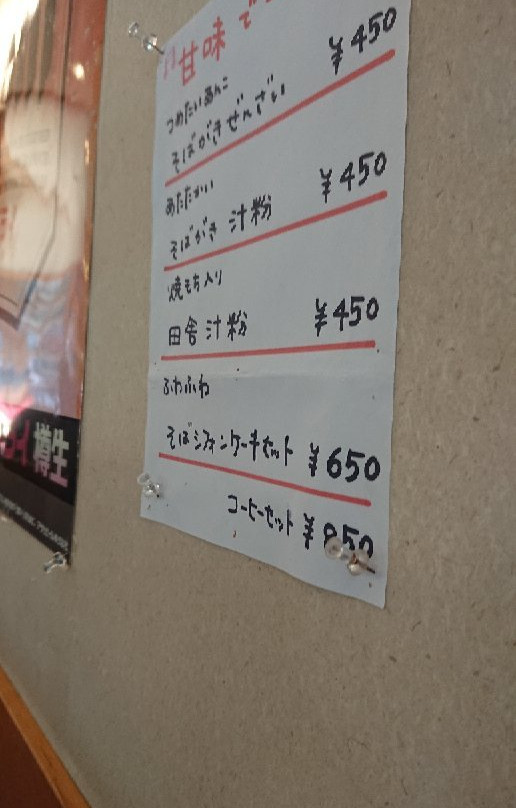 甘味
つめたいあんこ
そばがきぜんざい ¥450
あたたかい
そばがき 汁粉 ¥450
焼もち入り
田舎 汁粉 ¥450
ふわふわ
そばシフォンケーキセット ¥650
コーヒーセット ¥850
樽生